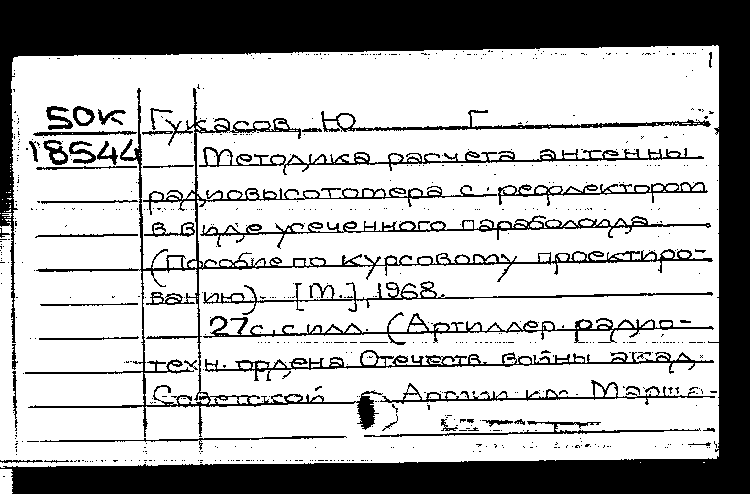 50К Гукасов, Ю Г
18544 Методика расчета антенны
радиовысотомера с рефлектором
в виде усеченного параболоида
(Пособие по курсовому проектиро-
ванию). [М.], 1968.
27с. с илл. (Артиллер. радио-
техн. ордена Отечеств. войны акад.
Советской Армии им. Марша-